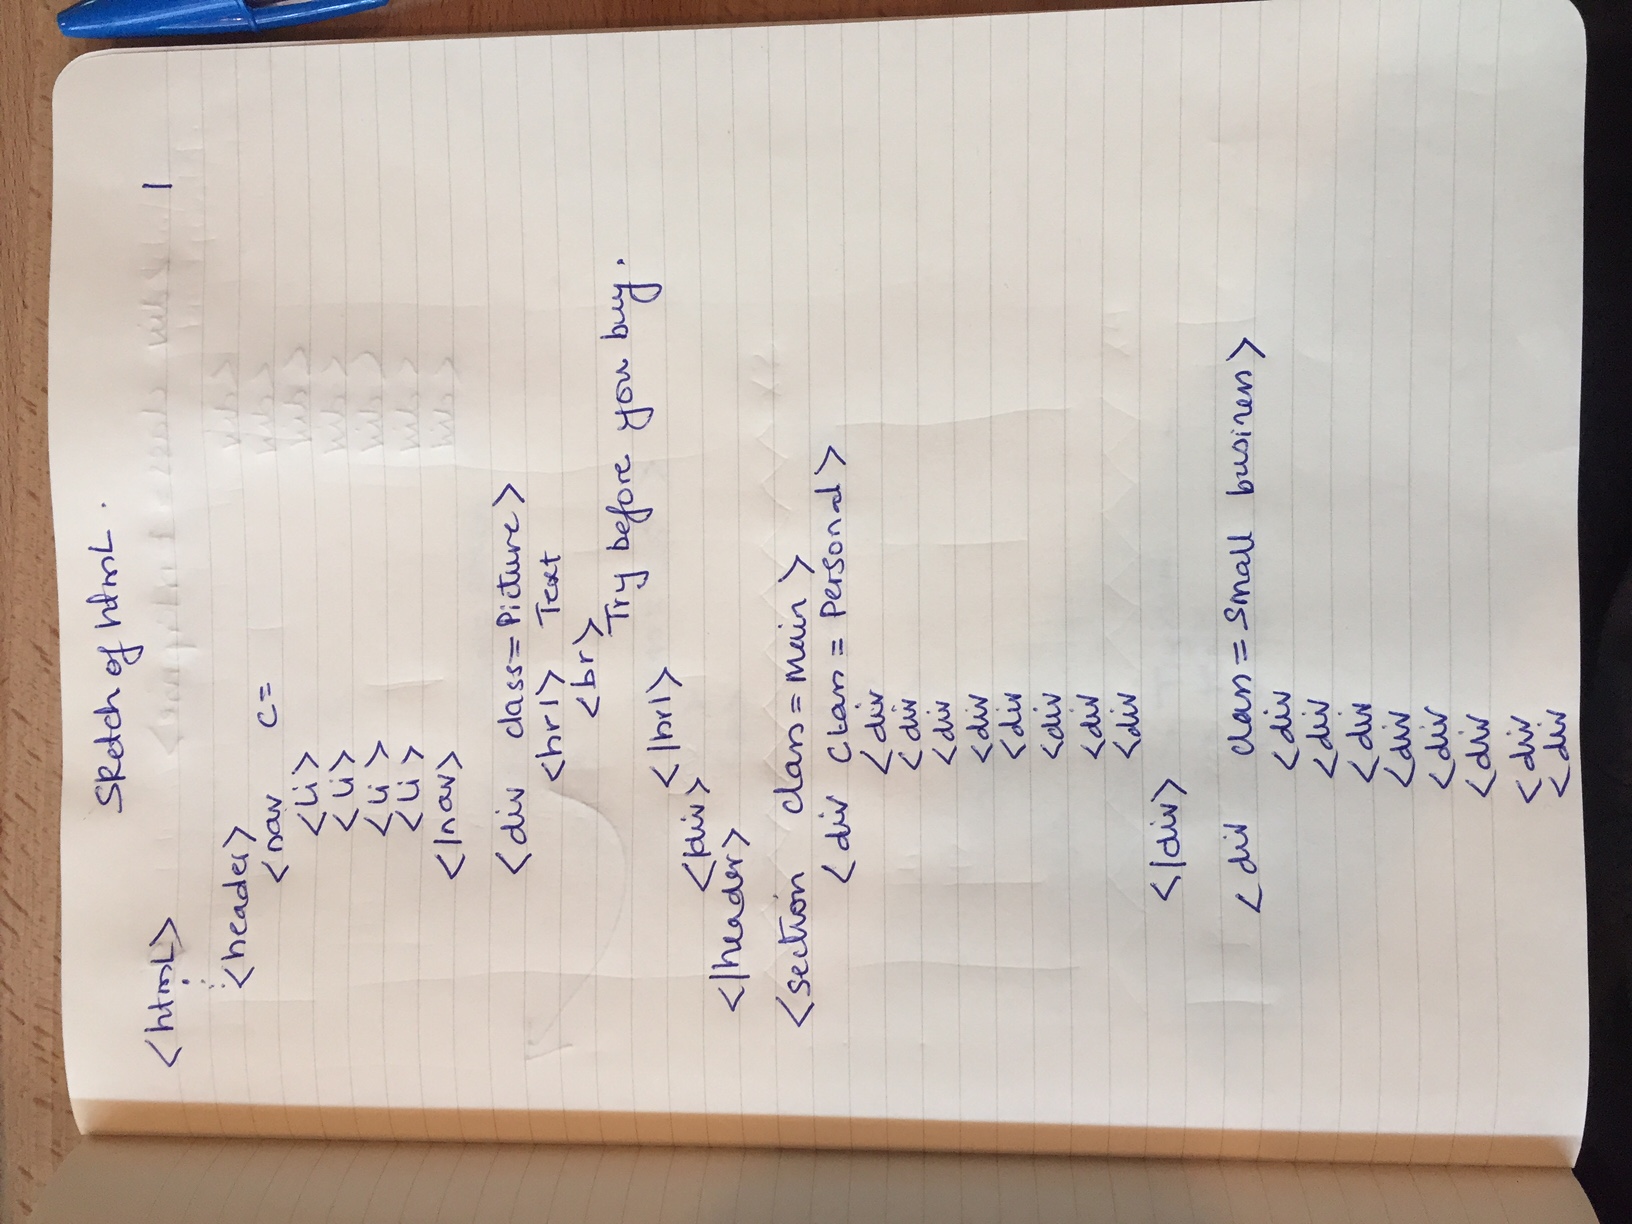 Sketch of htmL .
<htmL> 1
<header>
<nav c=
<li>
<li>
<li>
<li>
</nav>
<div class=Picture>
<hr1> Text
<br>
Try before you buy.
</hr1>
</div>
</header>
<section class=main>
<div class=Personal>
<div
<div
<div
<div
<div
<div
<div
<div
</div>
<div class=Small business>
<div
<div
<div
<div
<div
<div
<div
<div